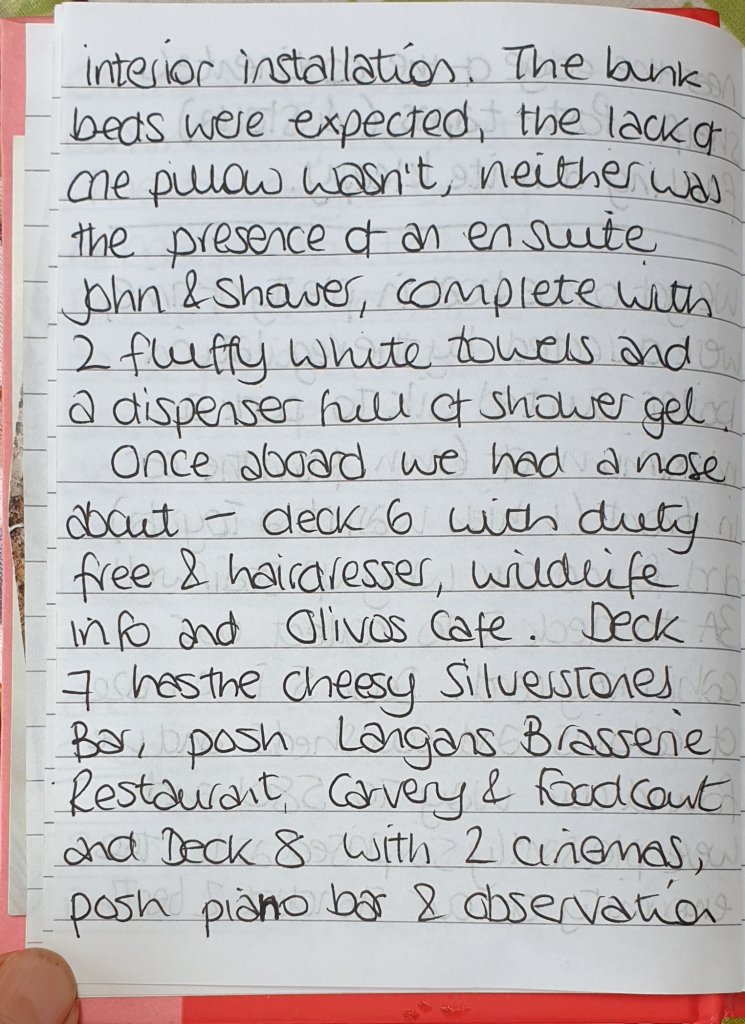 interior installation. The bunk
beds were expected, the lack of
one pillow wasn't, neither was
the presence of an en suite
john & shower, complete with
2 fluffy white towels and
a dispenser full of shower gel.
Once aboard we had a nose
about – deck 6 with duty
free & hairdresser, wildlife
info and Olivos Cafe. Deck
7 has the cheesy Silverstones
Bar, posh Langans Brasserie
Restaurant, Carvery & Food Court
and Deck 8 with 2 cinemas,
posh piano bar & observation